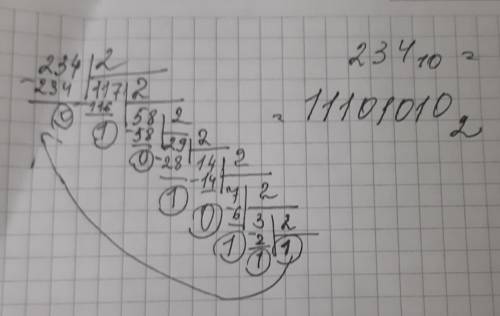 234 | 2
234₁₀ =
-234 | 117 | 2
0 -116 | 58 | 2
= 11101010₂
1 -58 | 29 | 2
0 -28 | 14 | 2
1 -14 | 7 | 2
0 -6 | 3 | 2
1 -2 | 1
1